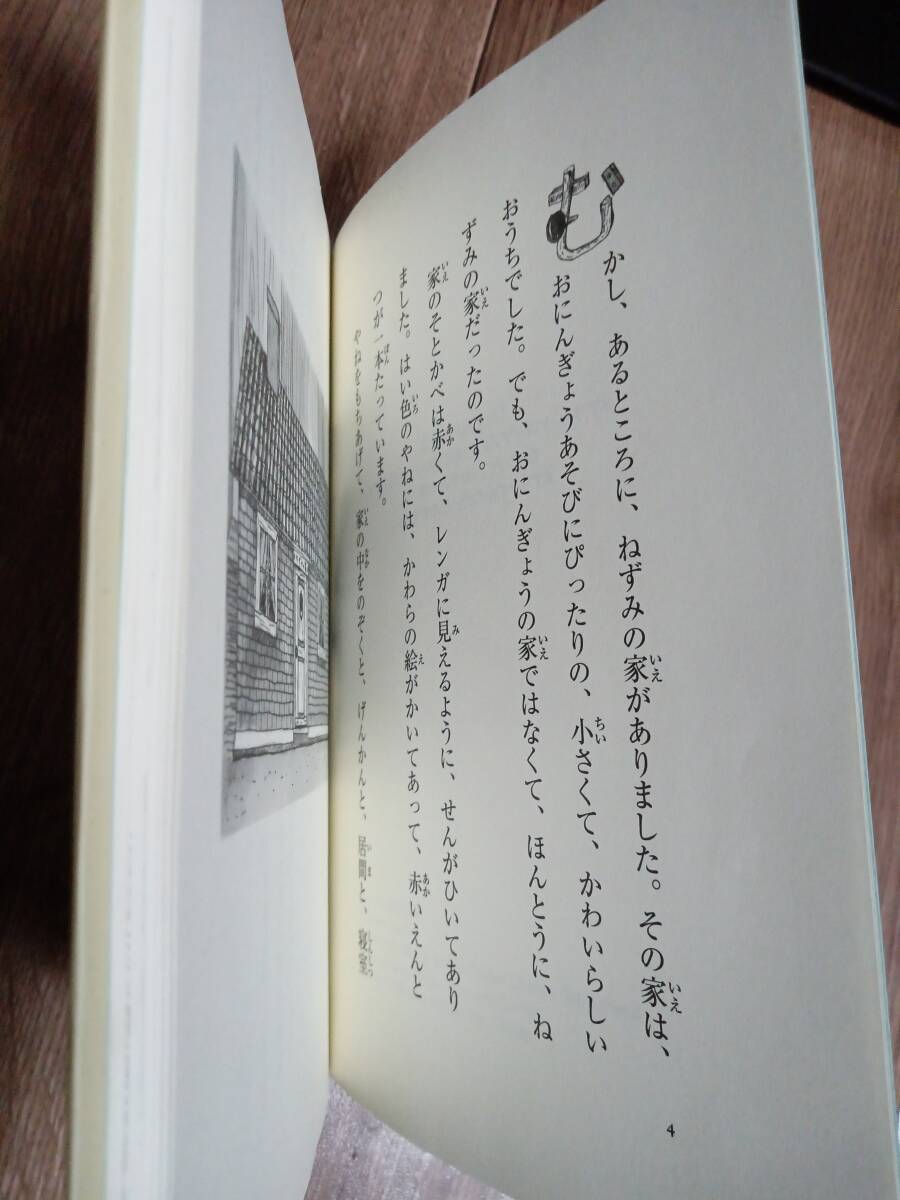 むかし、あるところに、ねずみの家がありました。その家は、
おにんぎょうあそびにぴったりの、小さくて、かわいらしい
おうちでした。でも、おにんぎょうの家ではなくて、ほんとうに、ね
ずみの家だったのです。
家のそとかべは赤くて、レンガに見えるように、せんがひいてあり
ました。はい色のやねには、かわらの絵がかいてあって、赤いえんと
つが一本たっています。
やねをもちあげて、家の中をのぞくと、げんかんと、居間と、寝室
4